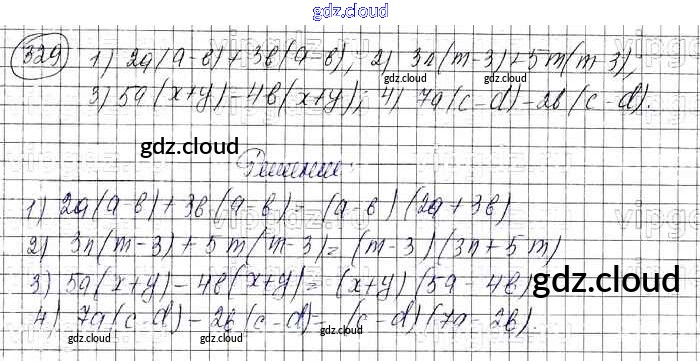 gdz.cloud
329 1) 2a(a-b)+3b(a-b); 2) 3n(m-3)+5m(m-3);
gdz.cloud gdz.cloud
3) 5a(x+y)-4b(x+y); 4) 7a(c-d)-2b(c-d).
gdz.cloud
Решение:
1) 2a(a-b)+3b(a-b)=(a-b)(2a+3b)
2) 3n(m-3)+5m(m-3)=(m-3)(3n+5m)
3) 5a(x+y)-4b(x+y)=(x+y)(5a-4b)
gdz.cloud
4) 7a(c-d)-2b(c-d)=(c-d)(7a-2b).
gdz.cloud gdz.cloud